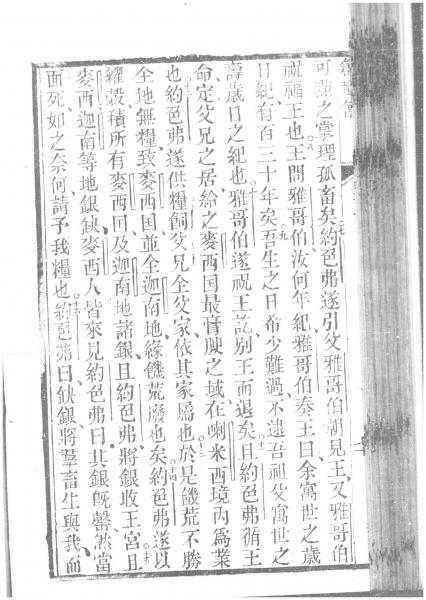 創世傳
可點之掌理孤畜矣約色弗遂引父雅哥伯朝見王又雅哥伯
祝福王也王問雅哥伯汝何年紀雅哥伯奏王曰余寓世之歲
日紀有百三十年矣吾生之日希少難過不逮吾祖父寓世之
壽歲日之紀也雅哥伯遂祝王訖別王而退矣且約色弗循王
命定父兄之居給之麥西國最膏腴之域在喇米西境內為業
也約色弗遂供糧飼父兄全父家依其家屬也於是饑荒不勝
全地無糧致麥西国並全迦南地緣饑荒廢也矣約色弗遂以
糴穀積所有麥西国及迦南地諸銀且約色弗將銀收王宮且
麥西迦南等地銀缺麥西人皆來見約色弗曰其銀旣罄然當
面死如之奈何請予我糧也約色弗曰缺銀將羣畜生與我而